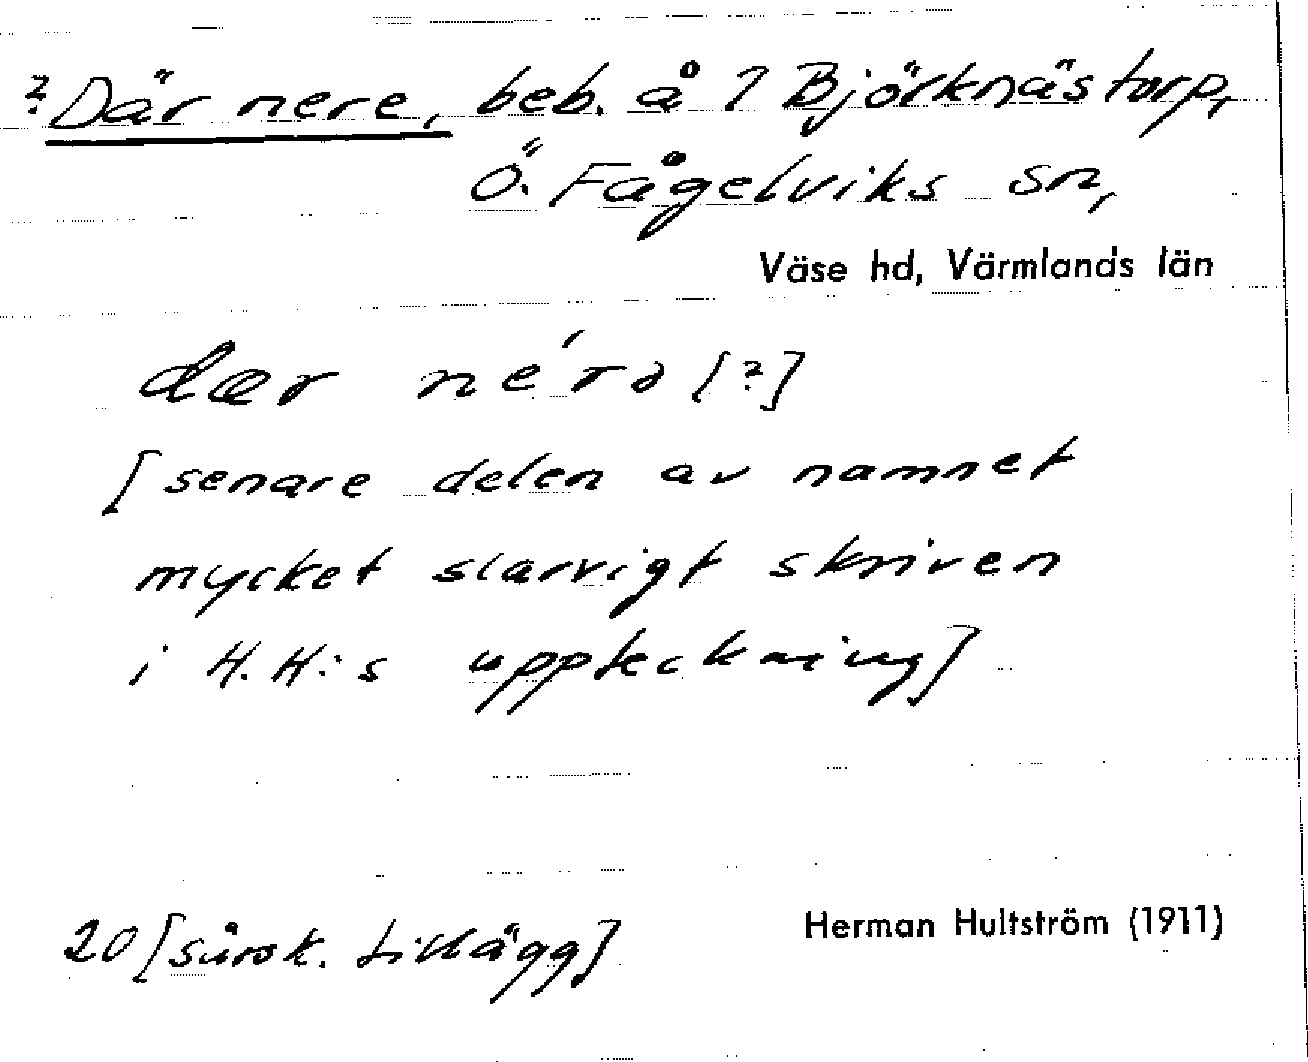 ? Där nere, beb. å 1 Björknästorp,
Ö. Fågelviks sn,
Väse hd, Värmlands län
dær né'rə [?]
[senare delen av namnet
mycket slarvigt skriven
i H.H:s uppteckning]
20 [särsk. tillägg]
Herman Hultström (1911)